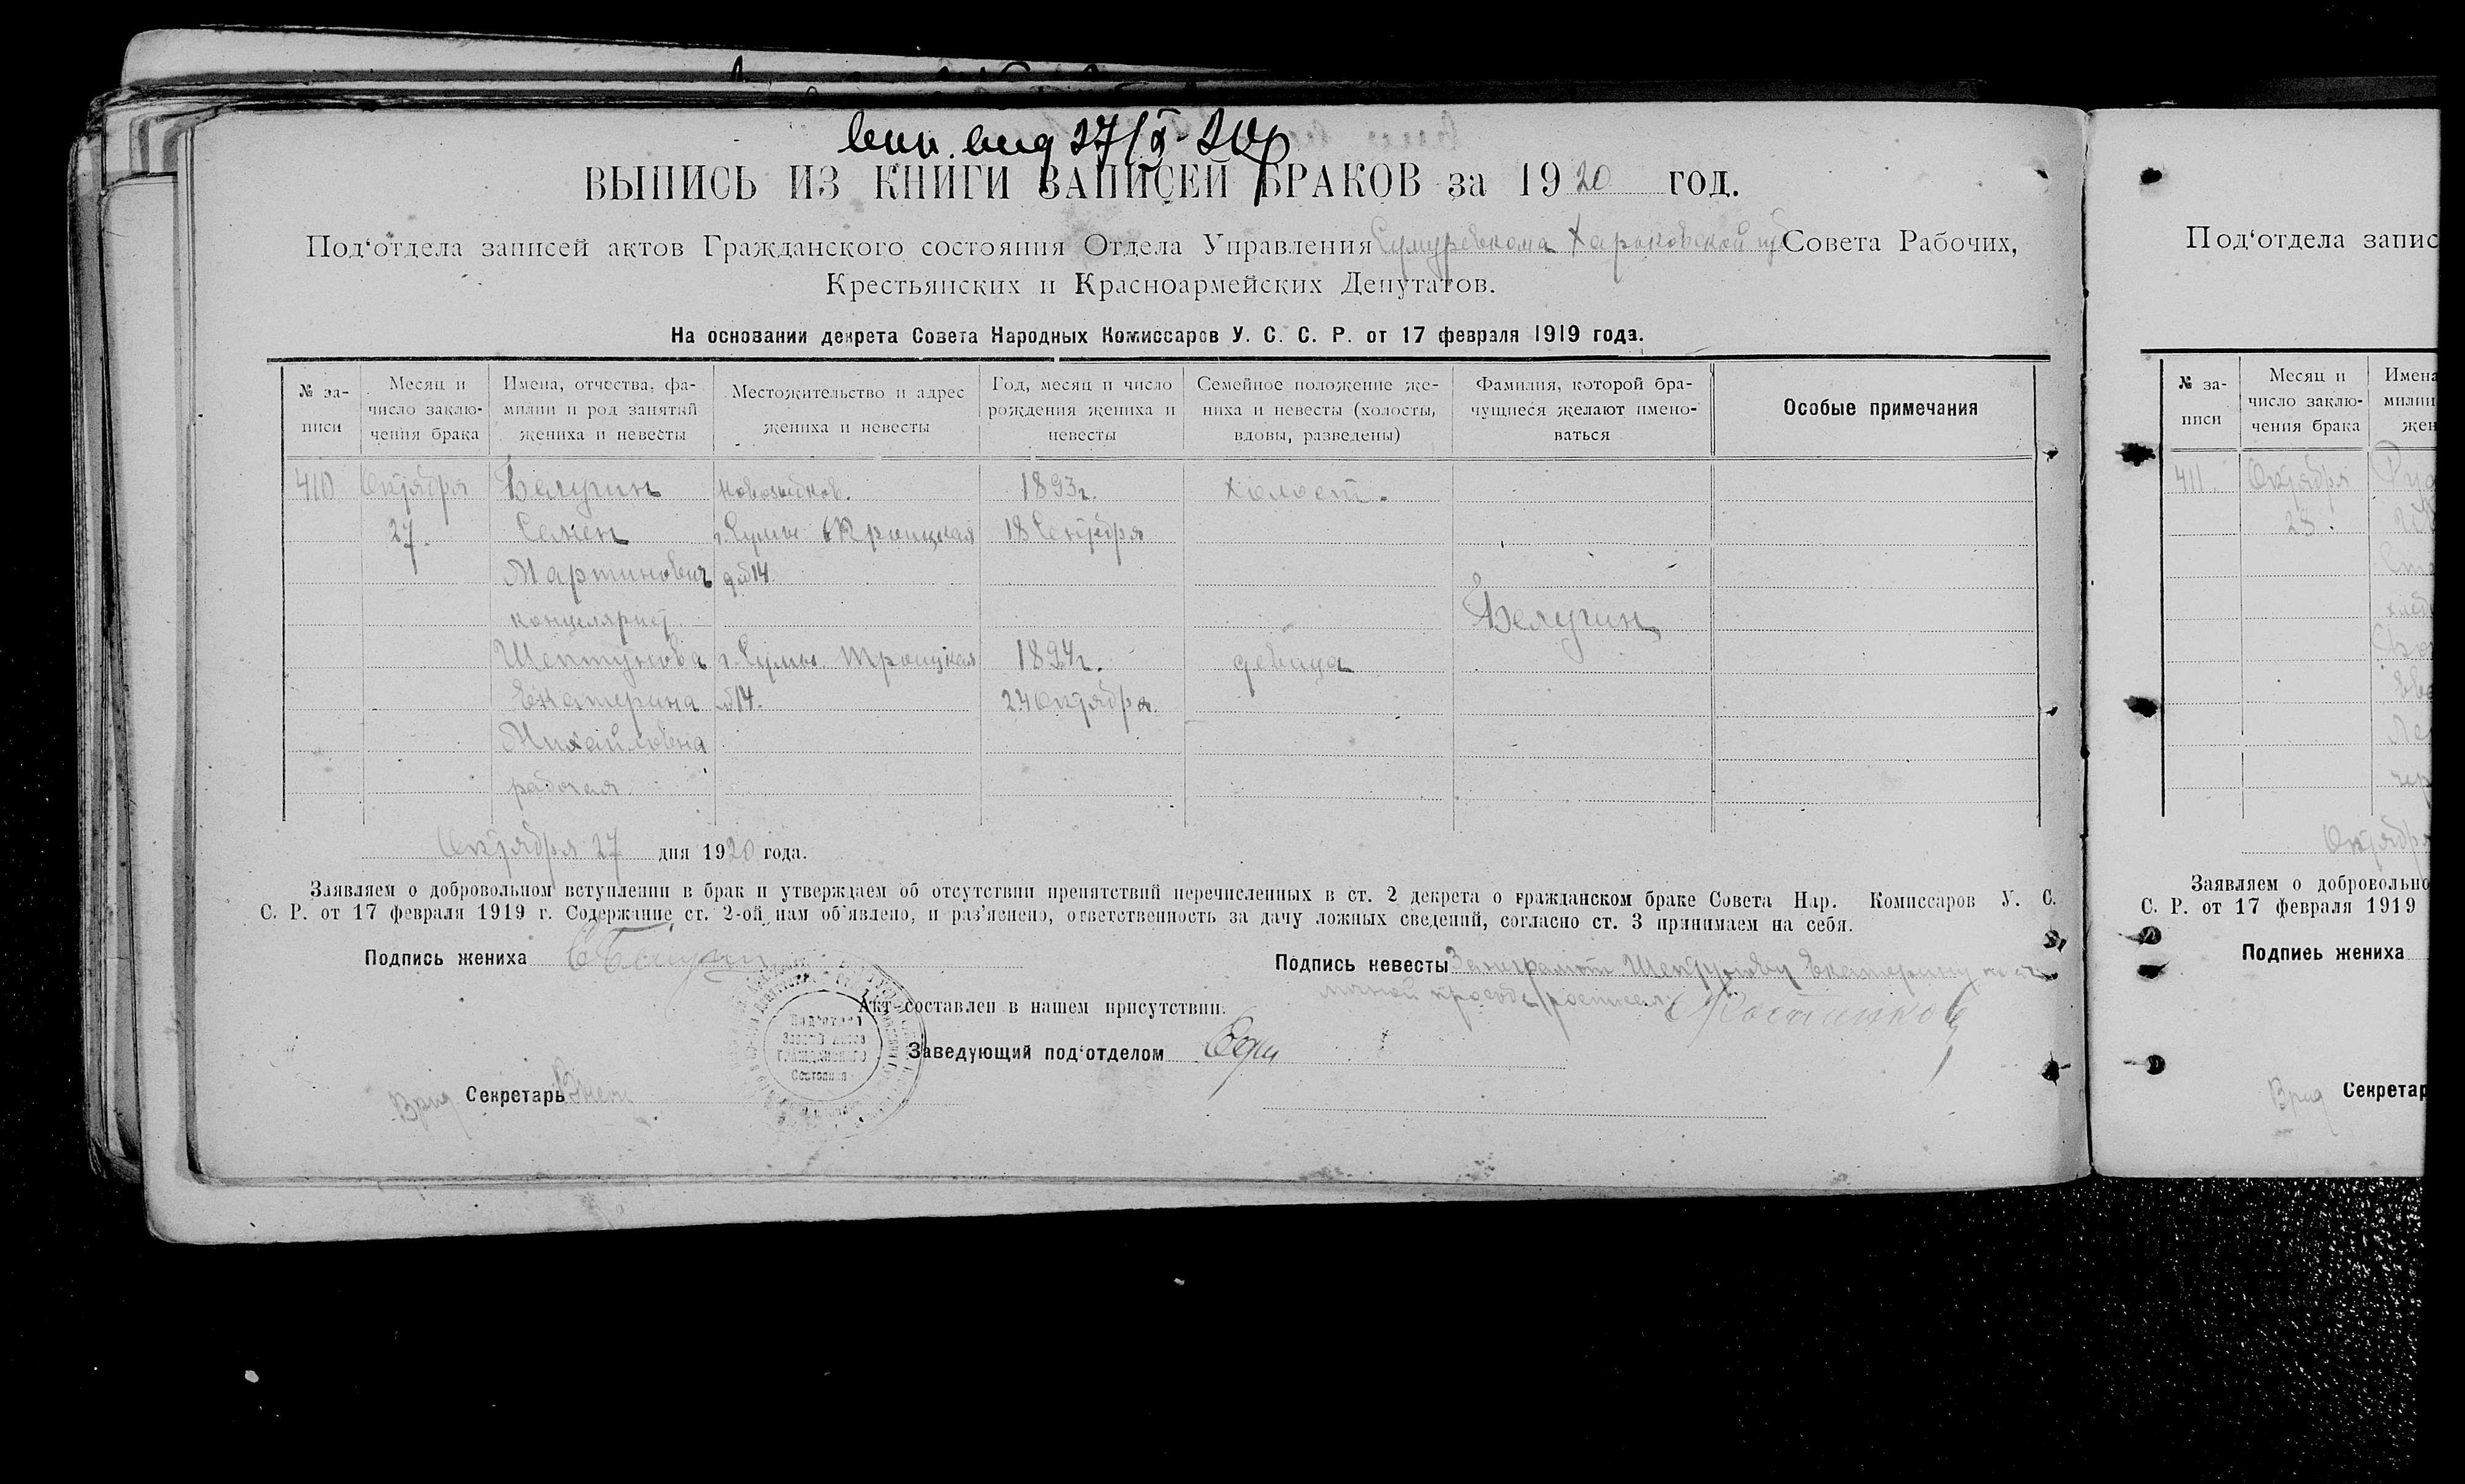 вып. выд 27/X-20
ВЫПИСЬ ИЗ КНИГИ ЗАПИСЕЙ БРАКОВ за 1920 год.
Под‘отдела записей актов Гражданского состояния Отдела Управления Сумуревкома Харьковской гу Совета Рабочих,
Крестьянских и Красноармейских Депутатов.
На основании декрета Совета Народных Комиссаров У. С. С. Р. от 17 февраля 1919 года.
№ за-
писи
Месяц и
число заклю-
чения брака
Имена, отчества, фа-
милии и род занятий
жениха и невесты
Местожительство и адрес
жениха и невесты
Год, месяц и число
рождения жениха и
невесты
Семейное положение же-
ниха и невесты (холосты,
вдовы, разведены)
Фамилия, которой бра-
чущиеся желают имено-
ваться
Особые примечания
410 Октября Белугин 1893г. холост.
27. Семен г. Сумы Троицкая 18 Сентября
Мартинович д№14.
концелярист
Белугин
Шептунова г. Сумы Троицкая 1894г. девица
Екатерина №14. 24 Октября
Михайловна
рабочая
Октября 27 дня 1920 года.
Заявляем о добровольном вступлении в брак и утверждаем об отсутствии препятствий перечисленных в ст. 2 декрета о гражданском браке Совета Нар. Комиссаров У. С.
С. Р. от 17 февраля 1919 г. Содержание ст. 2-ой нам об‘явлено, и раз‘яснено, ответственность за дачу ложных сведений, согласно ст. 3 принимаем на себя.
Подпись жениха СБелугин
Подпись невесты Занеграмот Шептунову Екатерину по ее
личной просьбе росписал
Акт составлен в нашем присутствии.
Заведующий под‘отделом
Врид Секретарь
Под‘отдел
Записи Актов
Гражданского
Состояния
Под‘отдела запис
№ за-
писи
Месяц и
число заклю-
чения брака
Имена
милии
жен
411. Октября
28.
Октября
Заявляем о добровольно
С. Р. от 17 февраля 1919
Подпись жениха
Врид Секретар